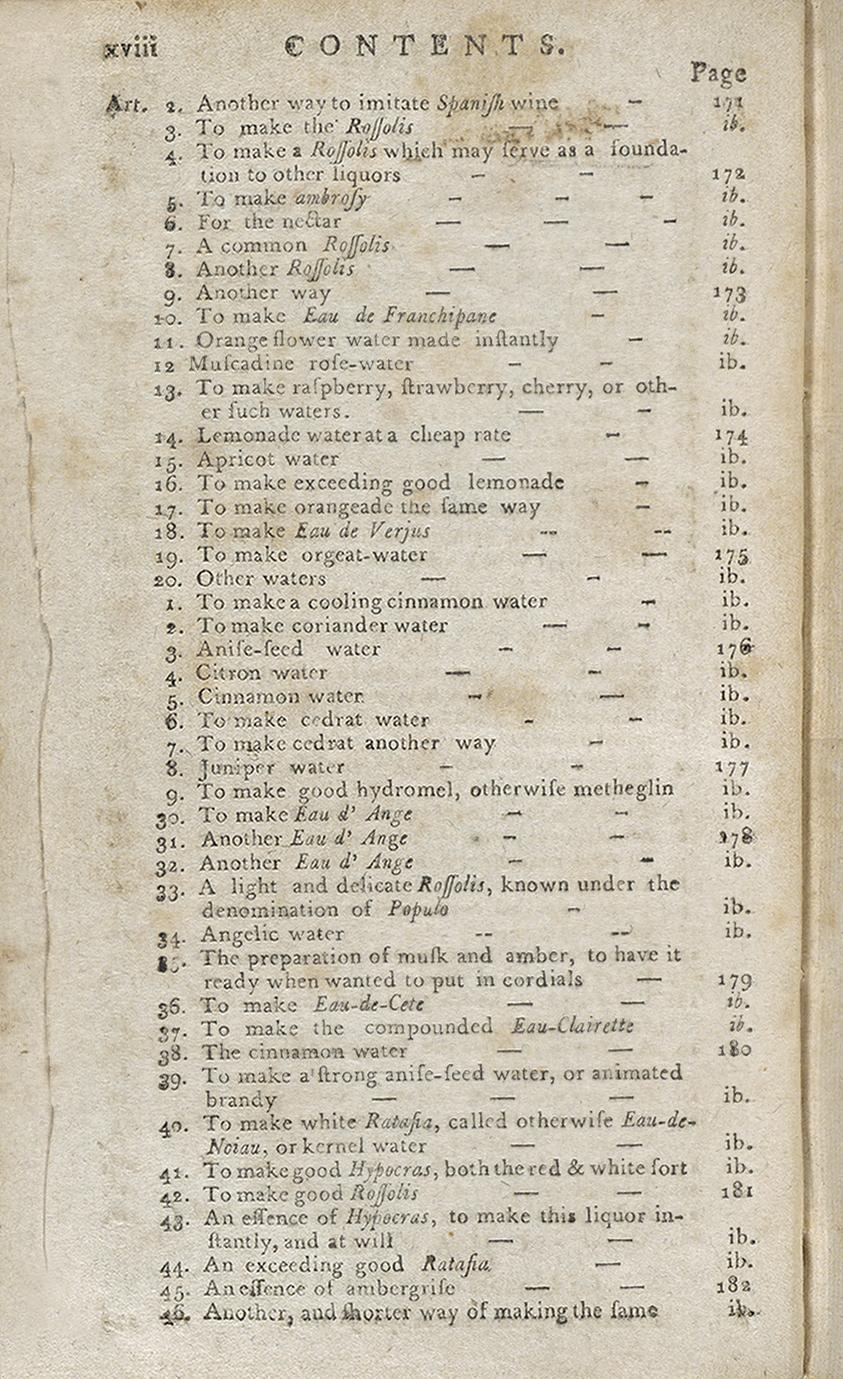 xviii CONTENTS.
Page
Art. 2. Another way to imitate Spaniſh wine - 171
3. To make the Roſſolis — — ib.
4. To make a Roſſolis which may ſerve as a founda-
tion to other liquors - - 172
5. To make ambroſy - - - ib.
6. For the nectar — — - ib.
7. A common Roſſolis — — ib.
8. Another Roſſolis — — ib.
9. Another way — — 173
10. To make Eau de Franchipane - ib.
11. Orange flower water made inſtantly - ib.
12 Muſcadine roſe-water - - ib.
13. To make raſpberry, ſtrawberry, cherry, or oth-
er ſuch waters. — - ib.
14. Lemonade water at a cheap rate - 174
15. Apricot water — — ib.
16. To make exceeding good lemonade - ib.
17. To make orangeade the ſame way - ib.
18. To make Eau de Verjus -- -- ib.
19. To make orgeat-water — — 175
20. Other waters — - ib.
1. To make a cooling cinnamon water - ib.
2. To make coriander water — - ib.
3. Aniſe-ſeed water - - 176
4. Citron water — - ib.
5. Cinnamon water - — ib.
6. To make cedrat water - - ib.
7. To make cedrat another way - ib.
8. Juniper water - - 177
9. To make good hydromel, otherwiſe metheglin ib.
30. To make Eau d' Ange - - ib.
31. Another Eau d' Ange - - 178
32. Another Eau d' Ange - - ib.
33. A light and delicate Roſſolis, known under the
denomination of Populo - ib.
34. Angelic water -- -- ib.
35. The preparation of muſk and amber, to have it
ready when wanted to put in cordials — 179
36. To make Eau-de-Cete — — ib.
37. To make the compounded Eau-Clairette ib.
38. The cinnamon water — — 180
39. To make a ſtrong aniſe-ſeed water, or animated
brandy — — — ib.
40. To make white Ratafia, called otherwiſe Eau-de-
Noiau, or kernel water — — ib.
41. To make good Hypocras, both the red & white ſort ib.
42. To make good Roſſolis — — 181
43. An eſſence of Hypocras, to make this liquor in-
ſtantly, and at will — — ib.
44. An exceeding good Ratafia. — ib.
45. An eſſence of ambergriſe — — 182
46. Another, and ſhorter way of making the ſame ib.